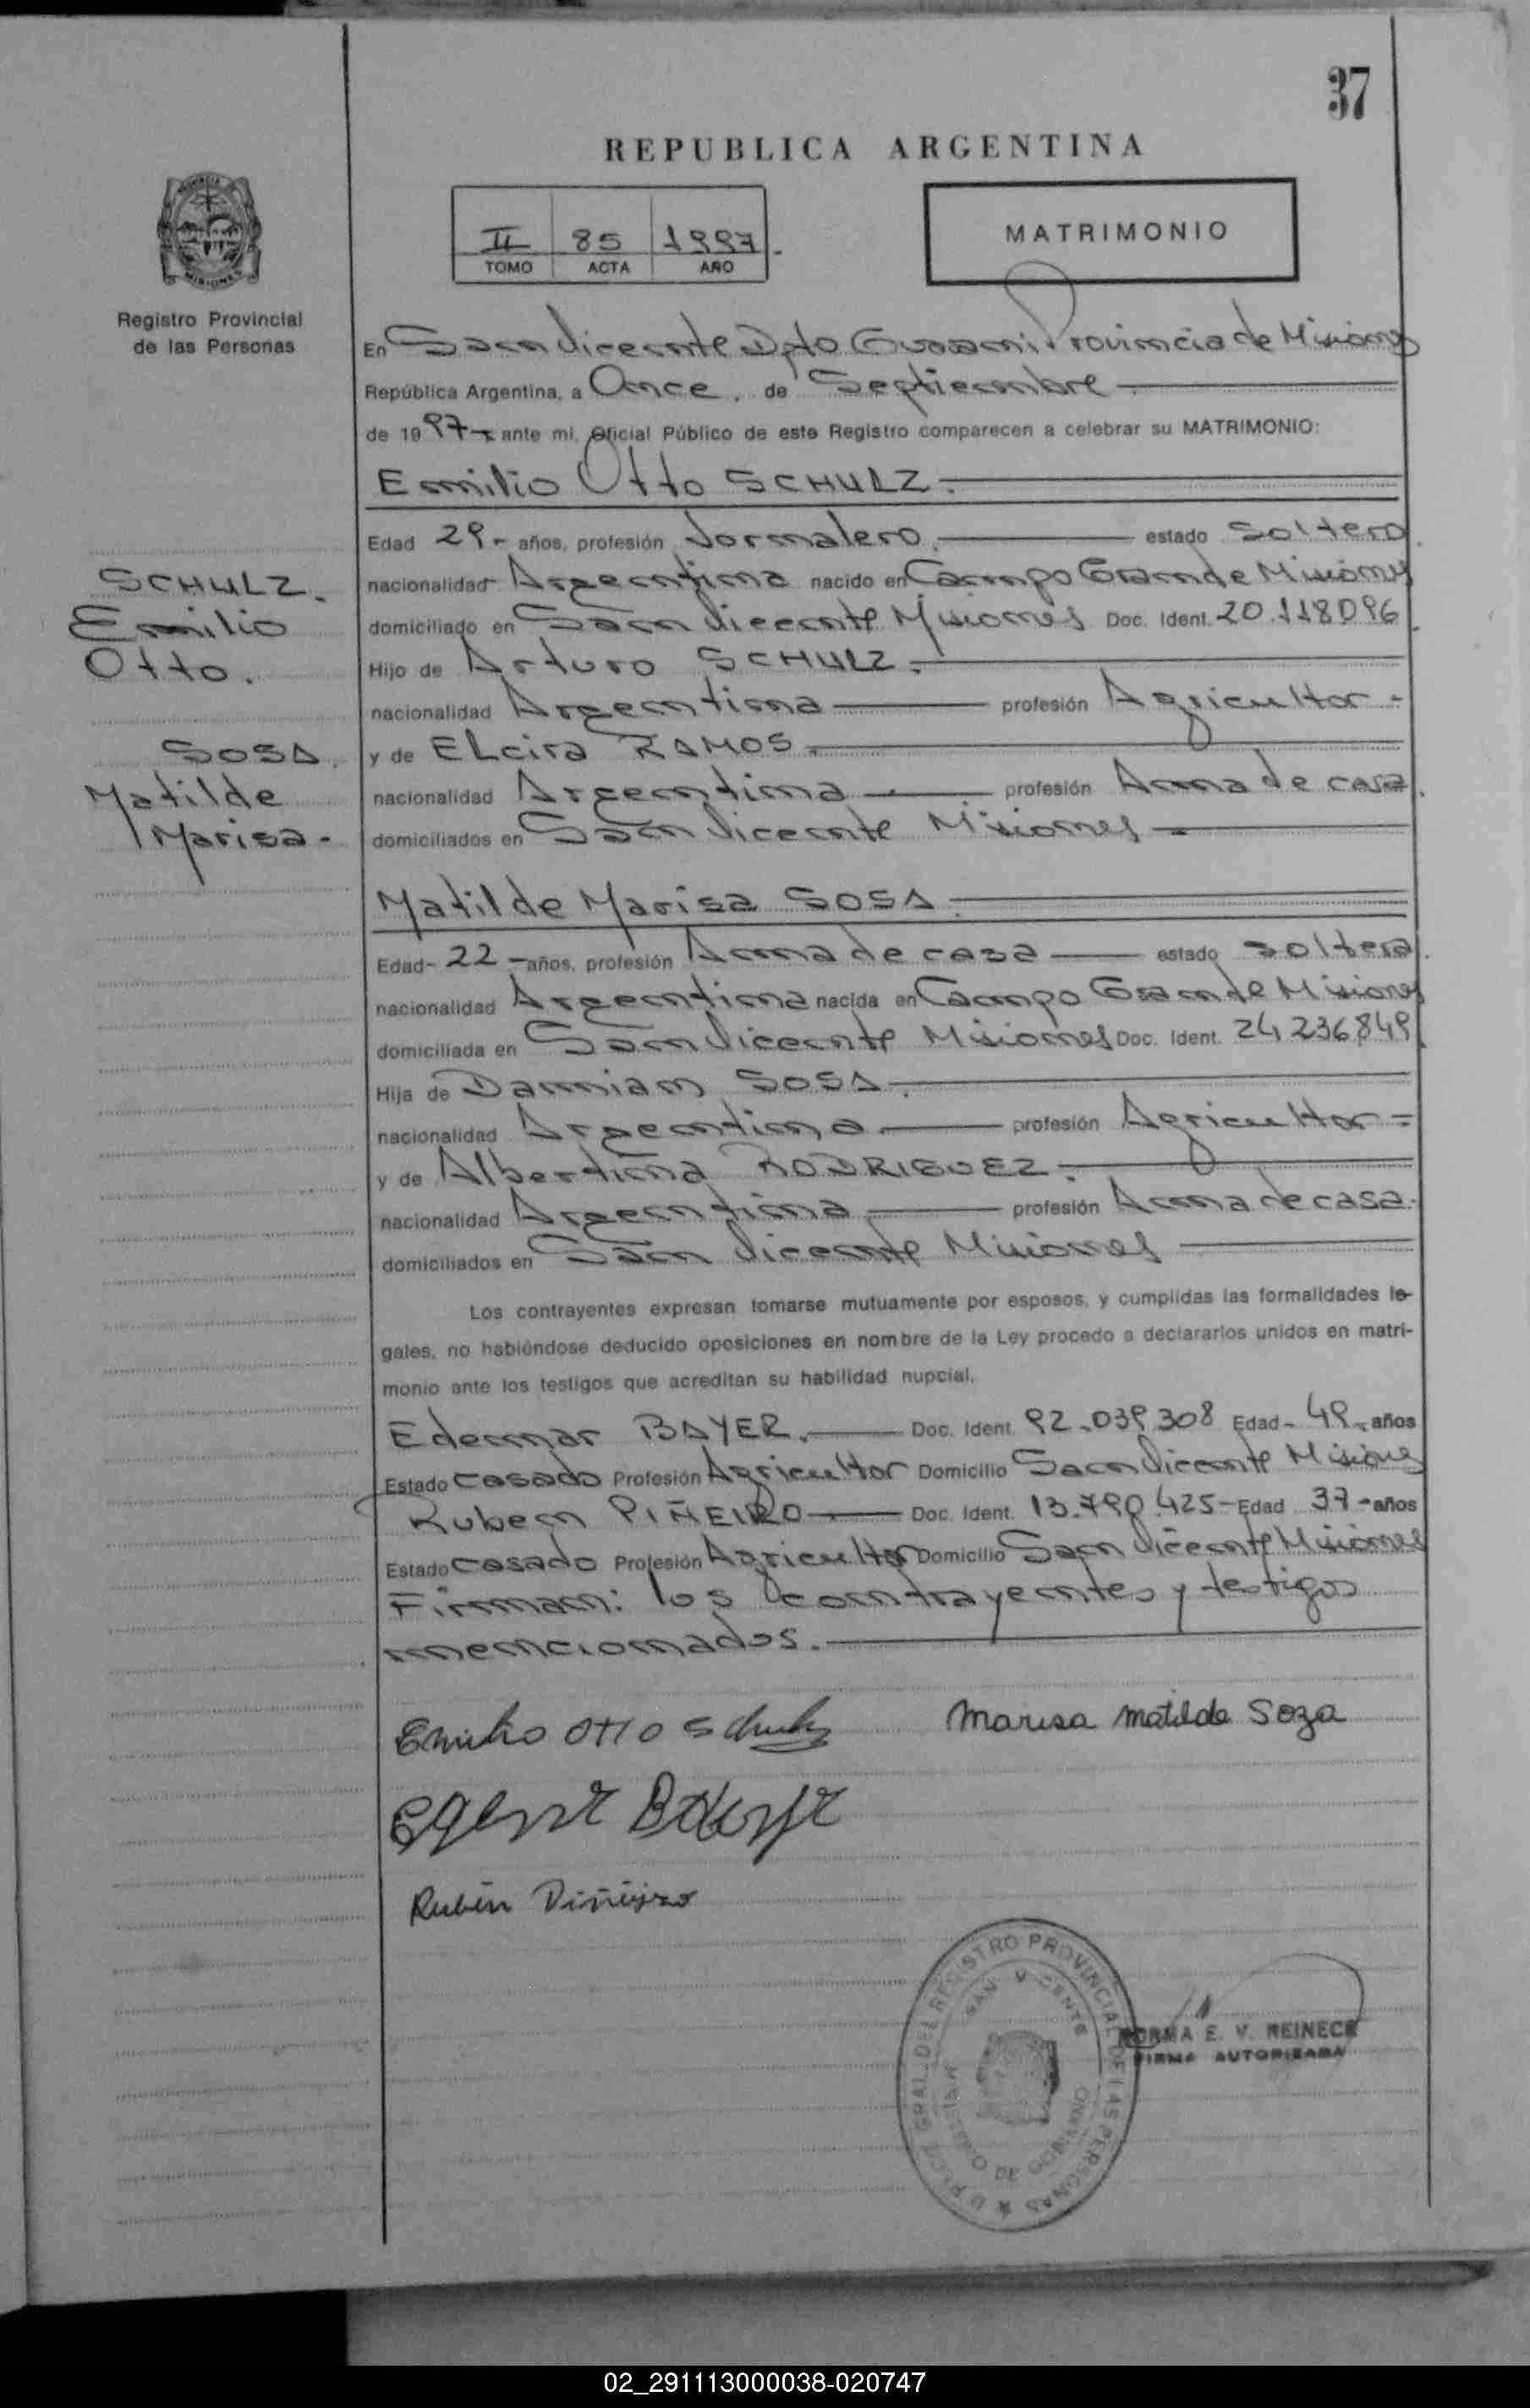 37
REPUBLICA ARGENTINA
II 85 1997
TOMO ACTA AÑO
MATRIMONIO
Registro Provincial
de las Personas
En San Vicente Dpto Guarani Provincia de Misiones
República Argentina, a Once. de Septiembre
de 1997 ante mi, Oficial Público de este Registro comparecen a celebrar su MATRIMONIO:
Emilio Otto SCHULZ.
Edad 29- años, profesión Jornalero. estado Soltero.
nacionalidad Argentina nacido en Campo Grande Misiones
domiciliado en San Vicente Misiones Doc. Ident. 20.118.096.
Hijo de Arturo SCHULZ.
nacionalidad Argentina profesión Agricultor-
y de Elcira RAMOS.
nacionalidad Argentina profesión Ama de casa.
domiciliados en San Vicente Misiones
SCHULZ.
Emilio
Otto.
SOSA.
Matilde
Marisa-
Matilde Marisa SOSA.
Edad- 22 -años, profesión Ama de casa estado soltera.
nacionalidad Argentina nacida en Campo Grande Misiones
domiciliada en San Vicente Misiones Doc. Ident. 24.236.849.
Hija de Damian SOSA.
nacionalidad Argentina profesión Agricultor-
y de Albertina RODRIGUEZ.
nacionalidad Argentina profesión Ama de casa.
domiciliados en San Vicente Misiones
Los contrayentes expresan tomarse mutuamente por esposos, y cumplidas las formalidades le-
gales, no habiéndose deducido oposiciones en nombre de la Ley procedo a declararlos unidos en matri-
monio ante los testigos que acreditan su habilidad nupcial.
Edemar BAYER. Doc. Ident. 92.039.308 Edad- 49- años
Estado casado Profesión Agricultor Domicilio San Vicente Misiones
Ruben PIÑEIRO Doc. Ident. 13.790.425- Edad 37- años
Estado casado Profesión Agricultor Domicilio San Vicente Misiones
Firman: los contrayentes y testigos
mencionados.
Emilio Otto Schulz
Marisa Matilde Soza
Rubén Piñeiro
DIRECC. GRAL. DEL REGISTRO PROVINCIAL DE LAS PERSONAS
SAN VICENTE
MINISTERIO DE GOBIERNO
NORMA E. V. REINECK
FIRMA AUTORIZADA
02_291113000038-020747